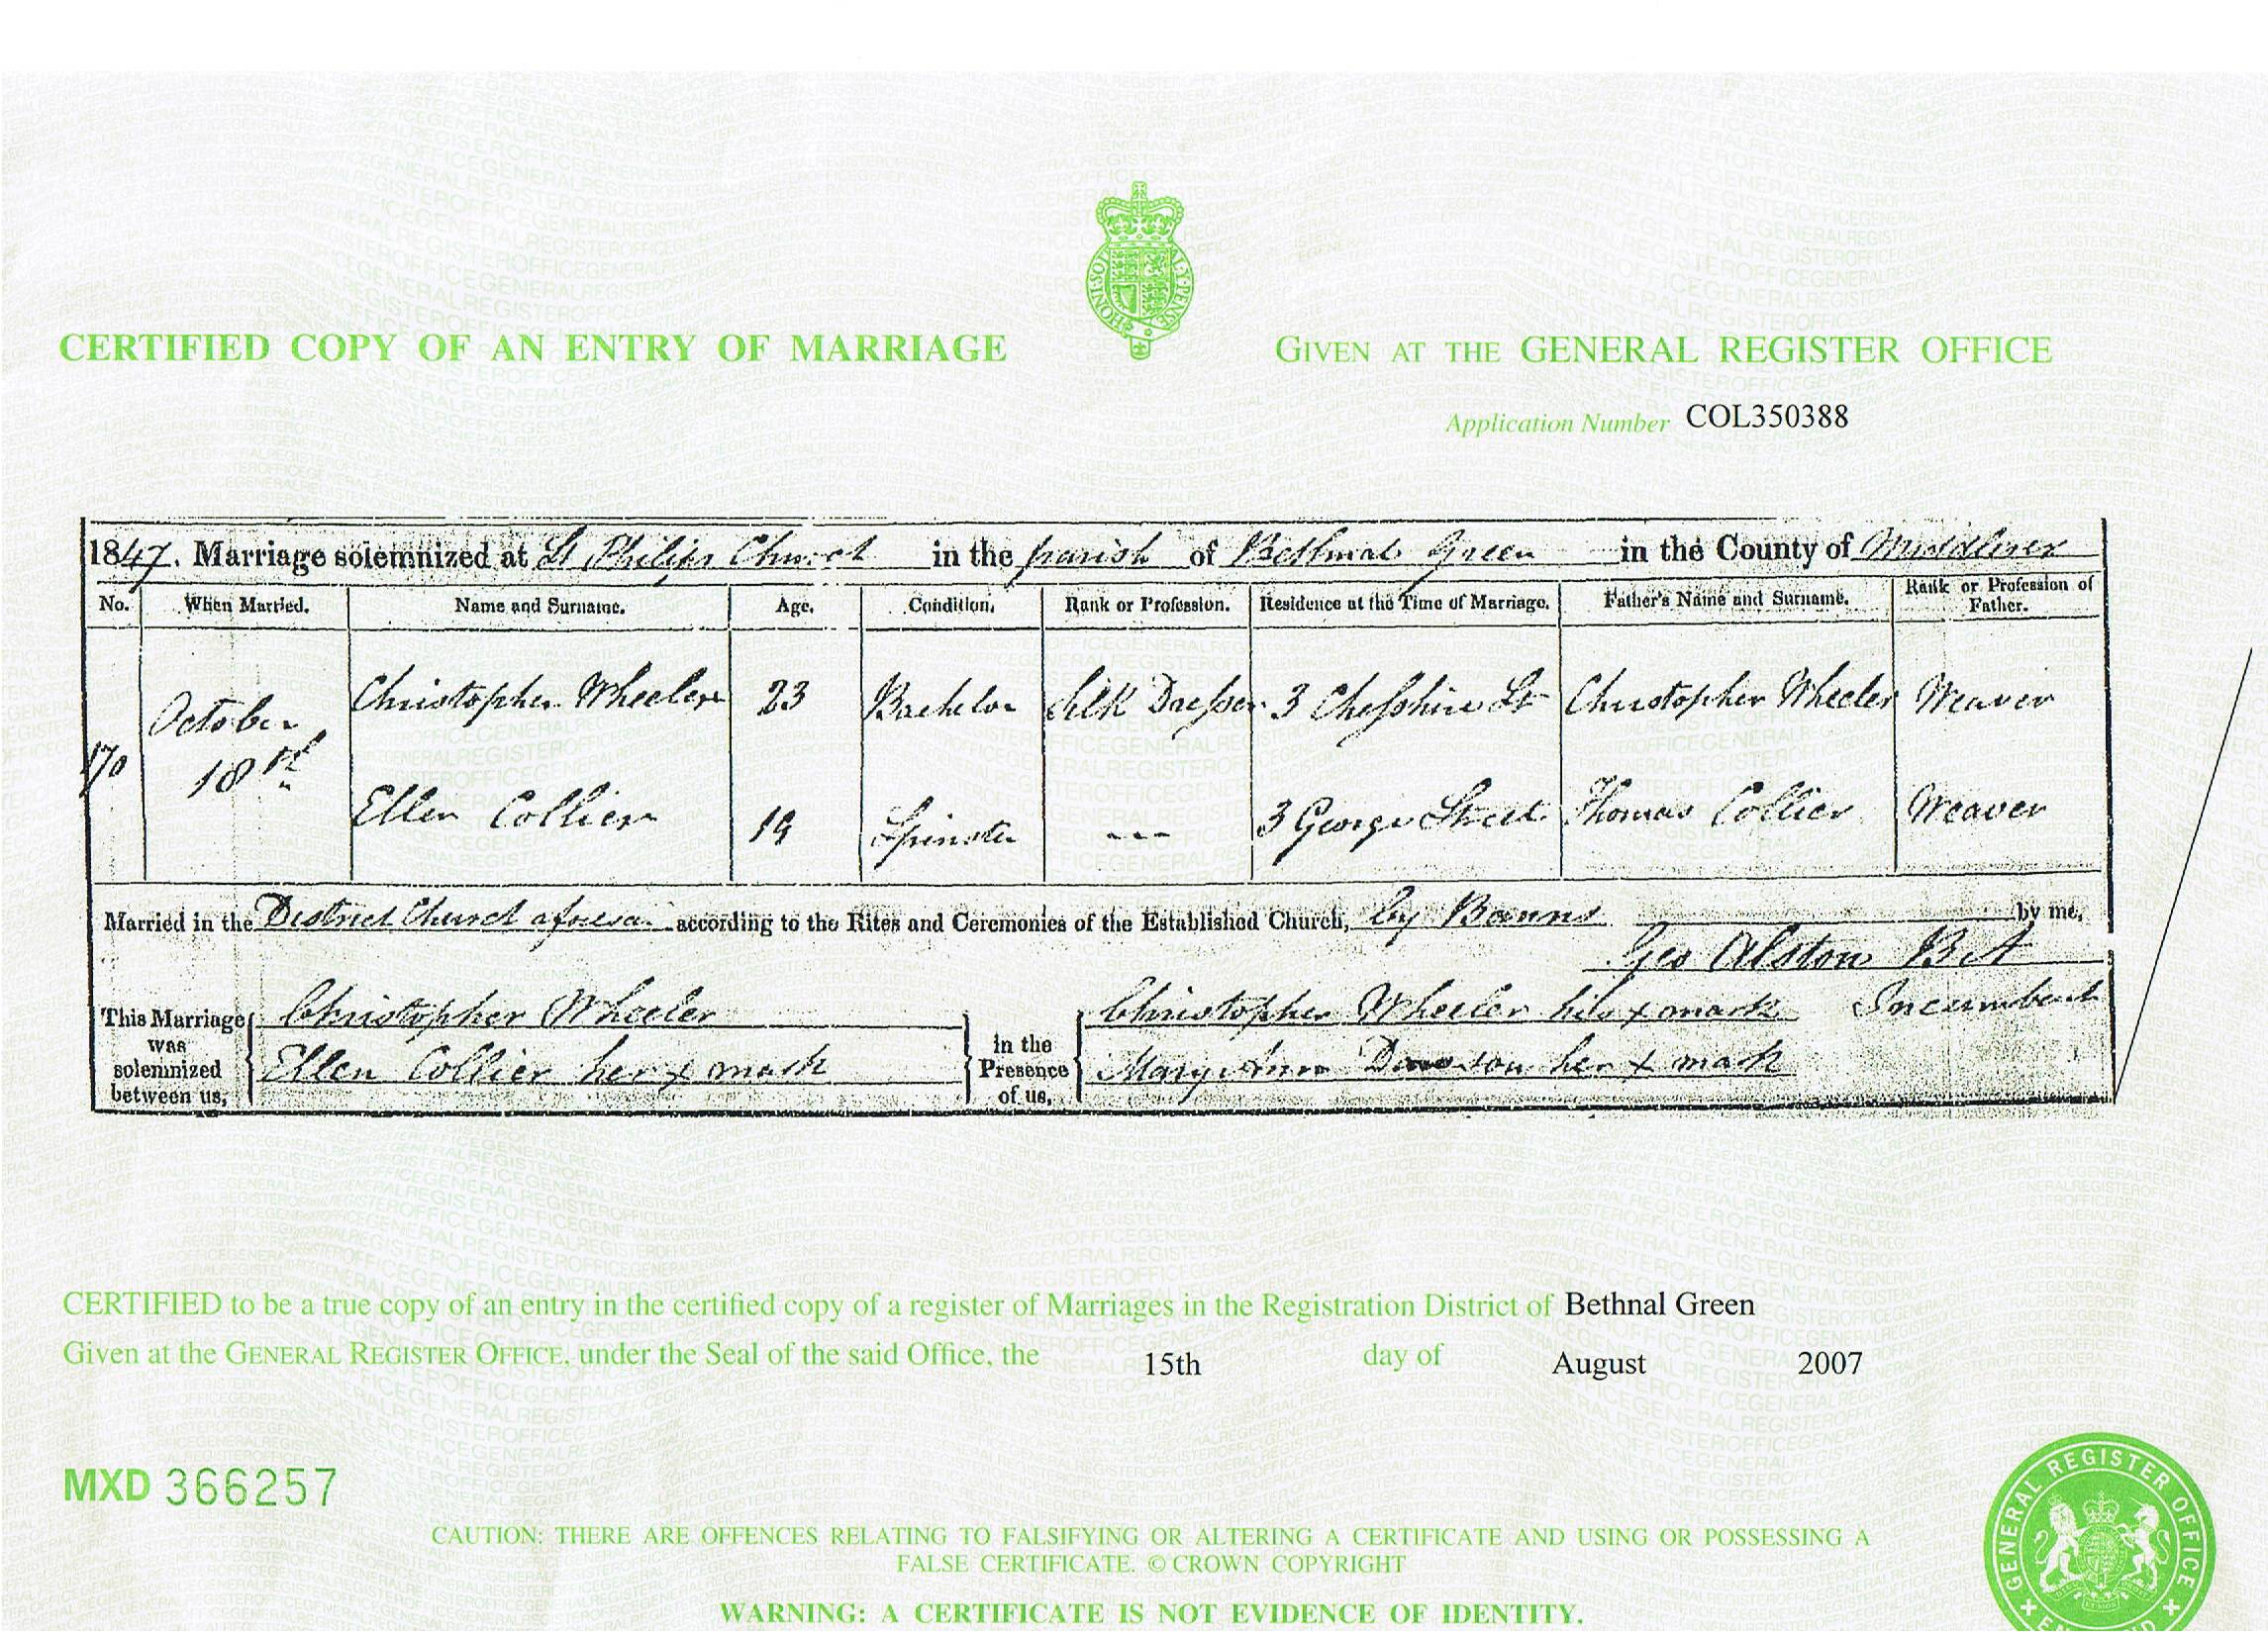 HONI SOIT QUI MAL Y PENSE
CERTIFIED COPY OF AN ENTRY OF MARRIAGE
GIVEN AT THE GENERAL REGISTER OFFICE
Application Number COL350388
1847. Marriage solemnized at St Philips Church in the parish of Bethnal Green in the County of Middlesex
No. When Married. Name and Surname. Age. Condition. Rank or Profession. Residence at the Time of Marriage. Father's Name and Surname. Rank or Profession of Father.
170 October 18th Christopher Wheeler 23 Bachelor Silk Dresser 3 Chesshire St Christopher Wheeler Weaver
Ellen Collier 19 Spinster --- 3 George Street Thomas Collier Weaver
Married in the District Church aforesa according to the Rites and Ceremonies of the Established Church, by Banns by me,
Geo Alston BA
Incumbent
This Marriage was solemnized between us, Christopher Wheeler
Ellen Collier her x mark
in the Presence of us, Christopher Wheeler his x mark
Mary Ann her x mark
CERTIFIED to be a true copy of an entry in the certified copy of a register of Marriages in the Registration District of Bethnal Green
Given at the GENERAL REGISTER OFFICE, under the Seal of the said Office, the 15th day of August 2007
MXD 366257
CAUTION: THERE ARE OFFENCES RELATING TO FALSIFYING OR ALTERING A CERTIFICATE AND USING OR POSSESSING A
FALSE CERTIFICATE. © CROWN COPYRIGHT
WARNING: A CERTIFICATE IS NOT EVIDENCE OF IDENTITY.
GENERAL REGISTER OFFICE